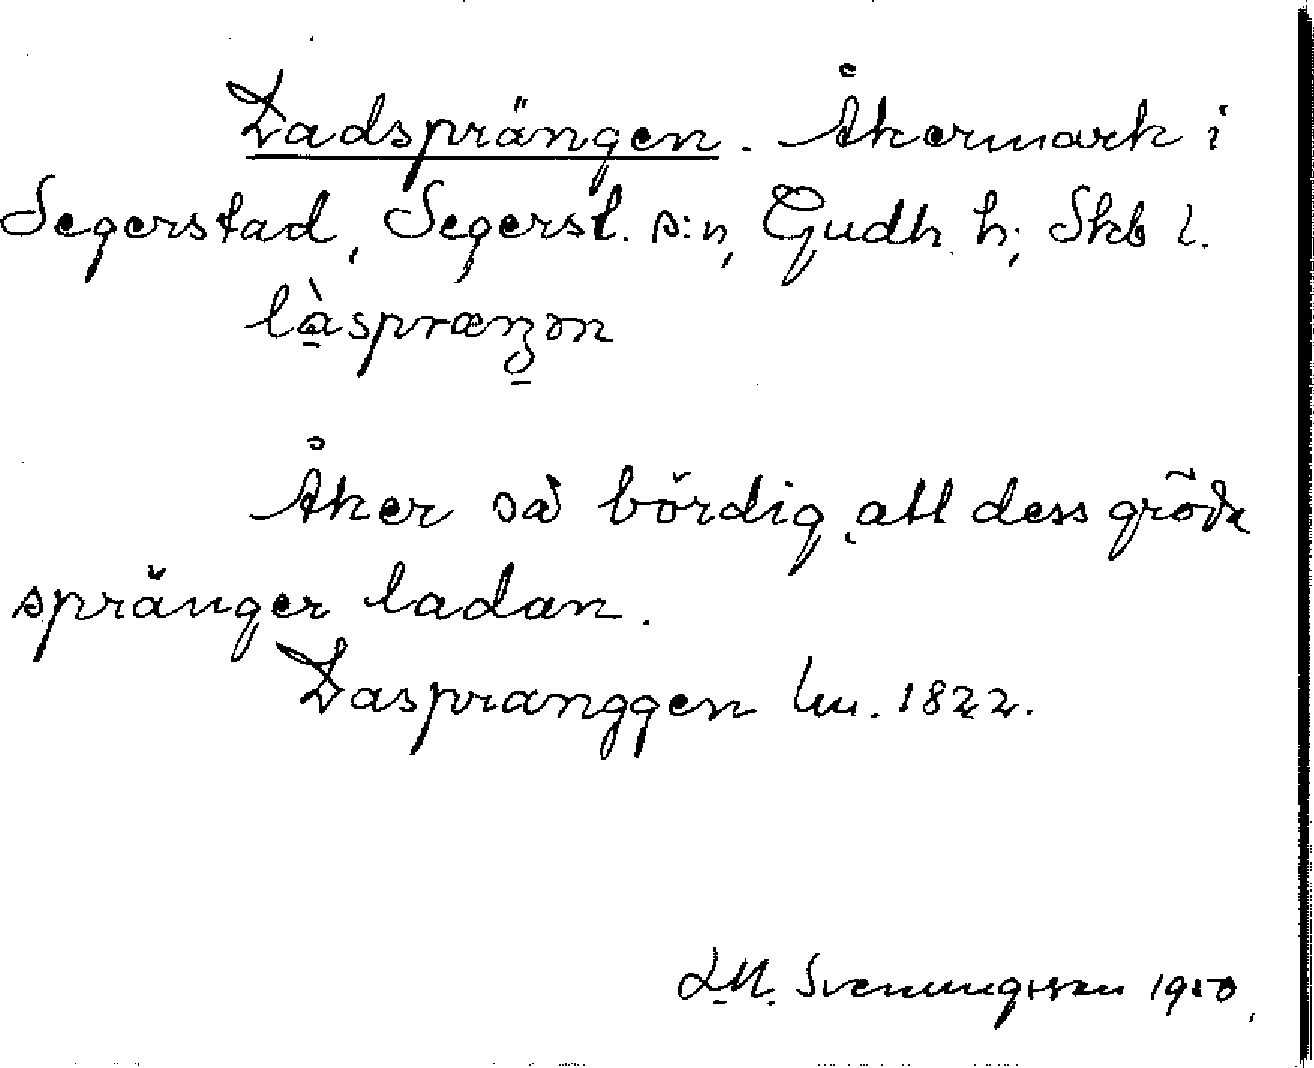 Ladsprängen. Åkermark i
Segerstad, Segerst. s:n, Gudh. h; Skb l.
làspræŋən
Åker så bördig, att dess gröda
spränger ladan.
Laspranggen lm. 1822.
L.M. Svenungsson 1950.